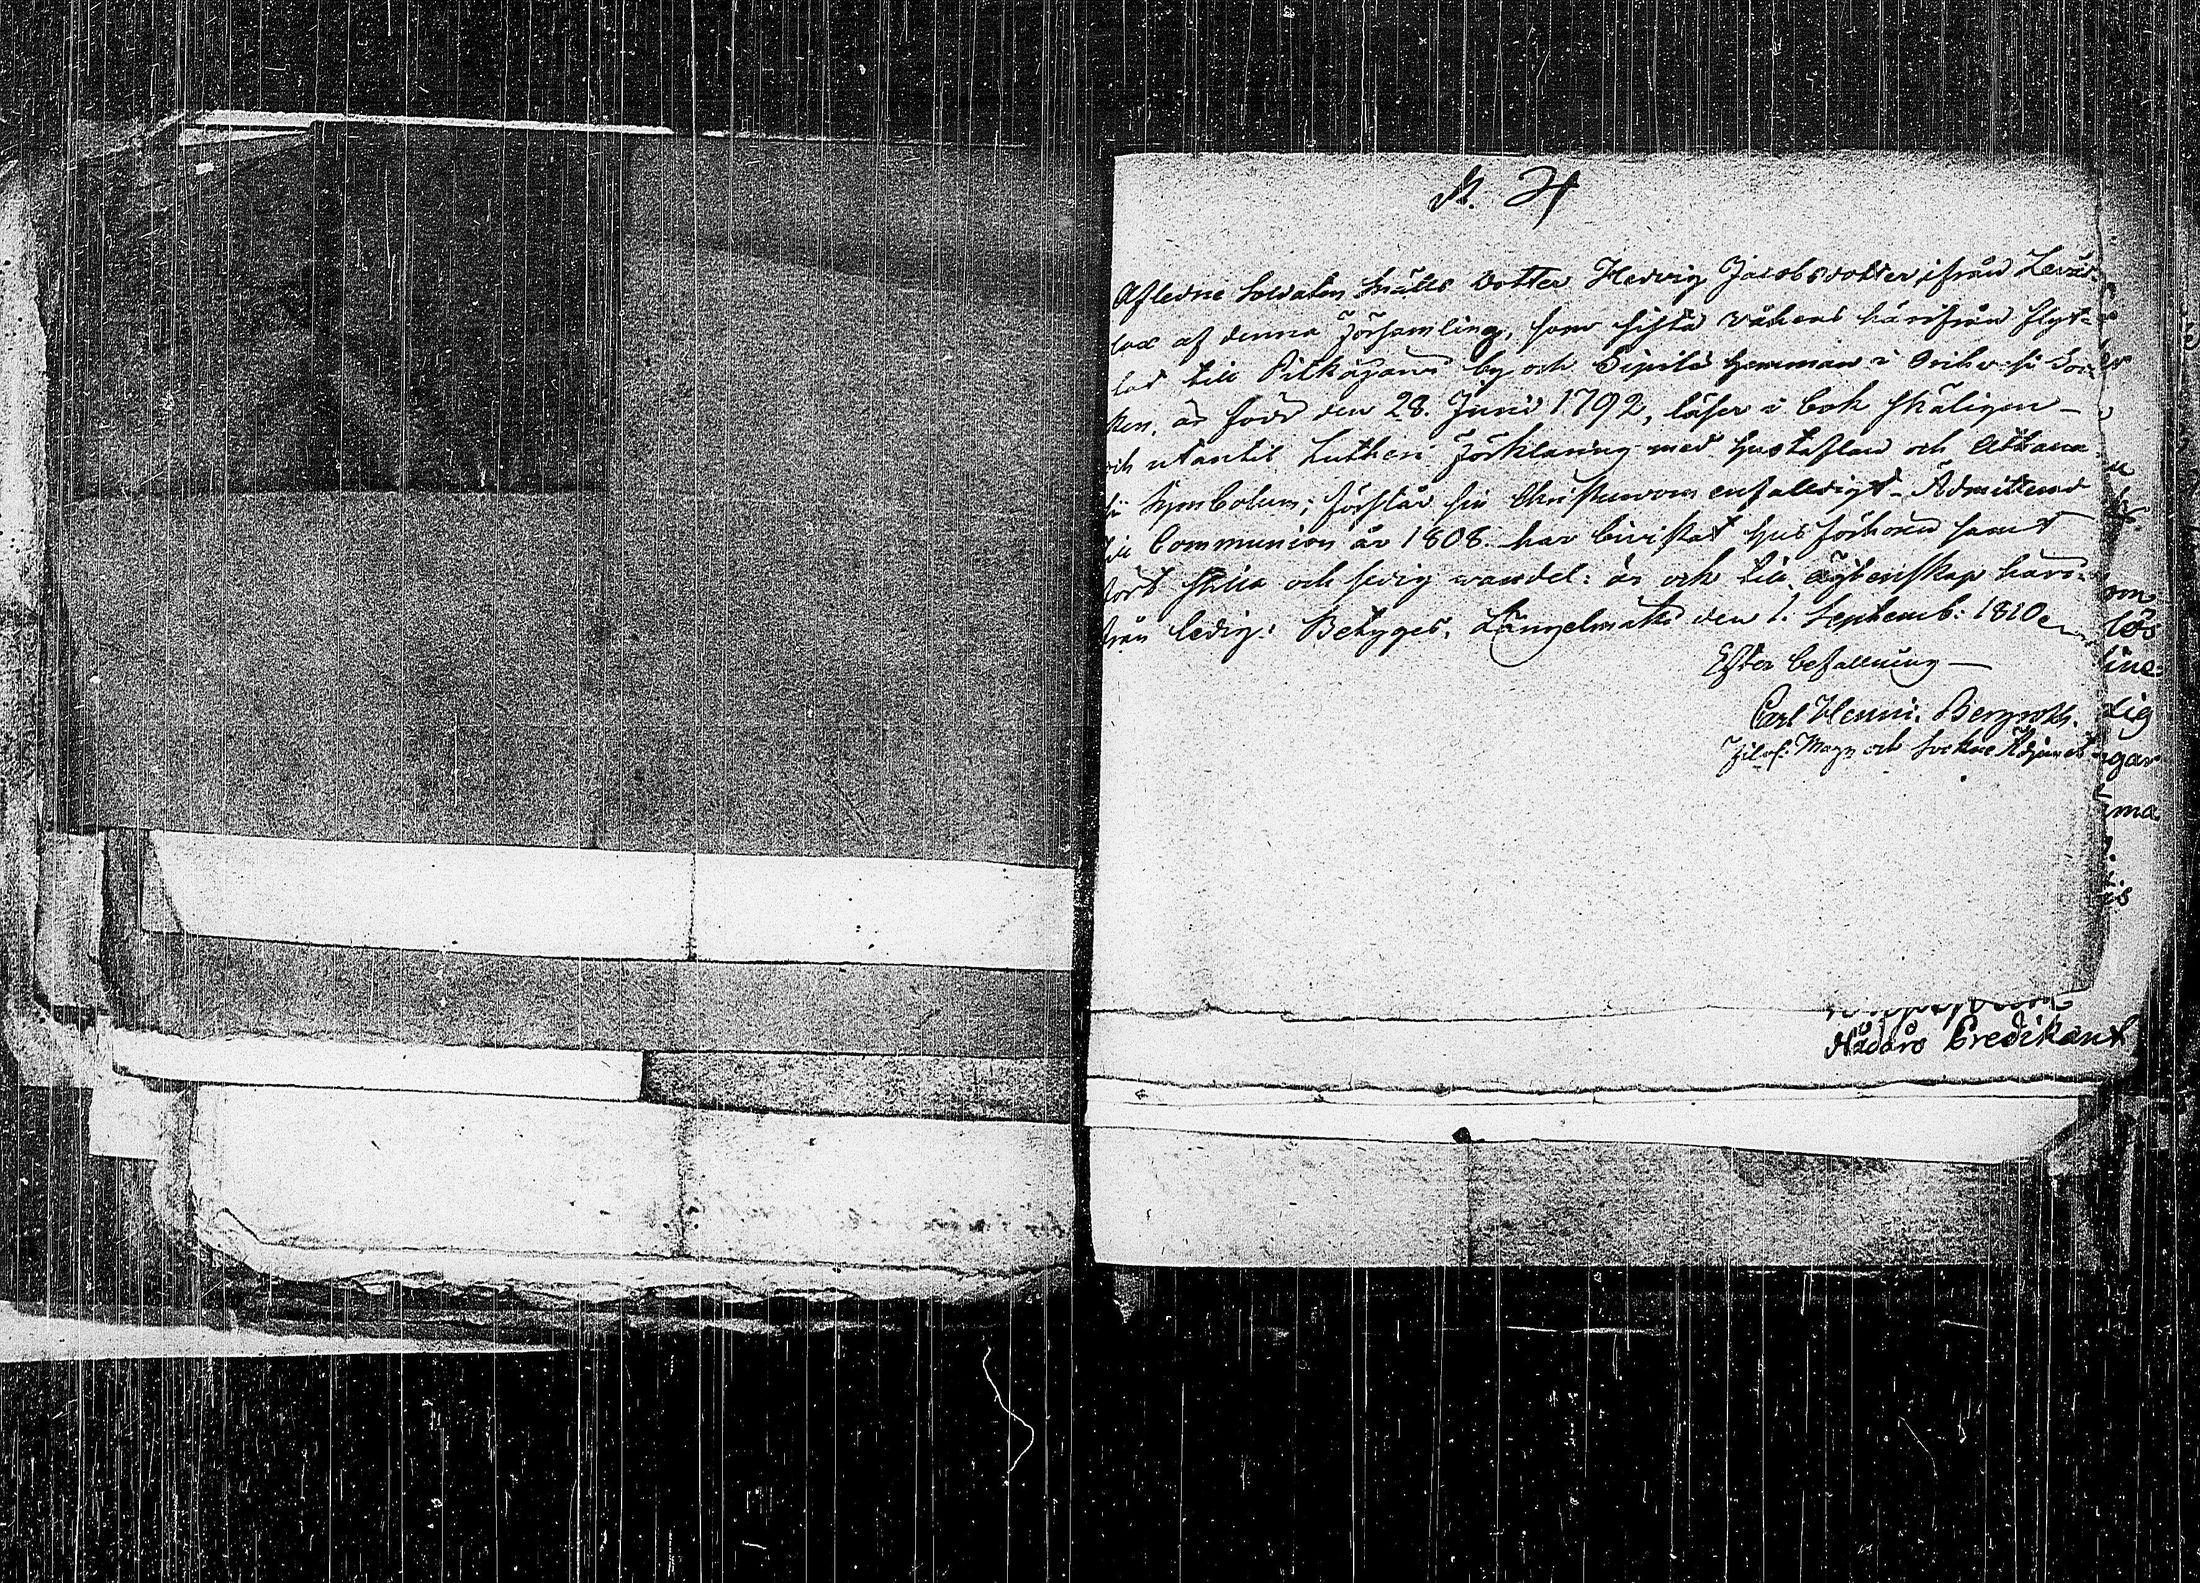 N. 24
Afledne Soldaten Snälls dotter Hedvig Jacobsdotter ifrån Leväs-
lax af denna Församling, som sista våhras härifrån flyt-
tat till Pitkäjärvi by och Sipilä hemman i Orihvesi Soc-
ken, är född den 28. Junii 1792, läser i bok skäligen
och utantil Lutheri Förklaring med hustaflan och Athana-
sii Symbolum; förstår sin Christendom enfalldigt. Admitterad
till Communion år 1808. har bivistat husförhören samt
fört stilla och sedig wandel: är och till ägtenskap härs-
från ledig: Betyges. Längelmäki den 1. Septemb: 1810
Efter befallning
Carl Henric. Bergroth.
Filos: Mag: och Sockne Adjunct
son
lös
ine-
dig
gar
ma
is
Nådårs Predikant